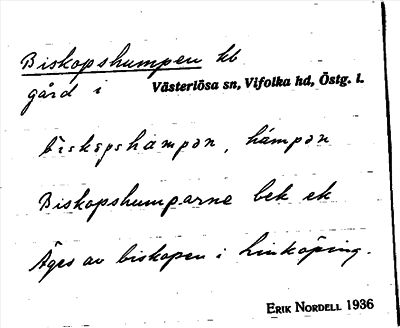 Biskopshumpen kb
gård i Västerlösa sn, Vifolka hd, Östg. l.
biskọpshampən, hámpən
Biskopshumparne bek ek
Äges av biskopen i Linköping.
ERIK NORDELL 1936